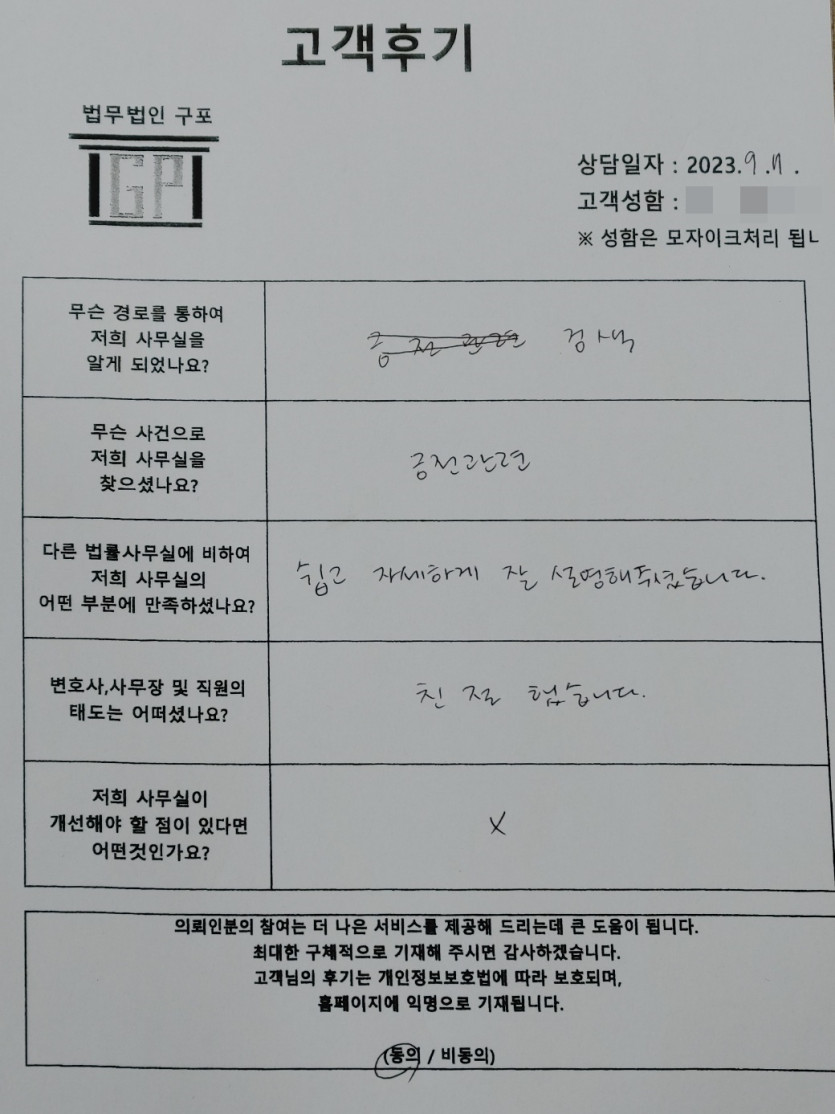 고객후기
법무법인 구포
GP
상담일자 : 2023.9.11.
고객성함 :
※ 성함은 모자이크처리 됩ㄴ
무슨 경로를 통하여
저희 사무실을
알게 되었나요?
금전관련 검색
무슨 사건으로
저희 사무실을
찾으셨나요?
금전관련
다른 법률사무실에 비하여
저희 사무실의
어떤 부분에 만족하셨나요?
쉽고 자세하게 잘 설명해주셨습니다.
변호사,사무장 및 직원의
태도는 어떠셨나요?
친절 했습니다.
저희 사무실이
개선해야 할 점이 있다면
어떤것인가요?
X
의뢰인분의 참여는 더 나은 서비스를 제공해 드리는데 큰 도움이 됩니다.
최대한 구체적으로 기재해 주시면 감사하겠습니다.
고객님의 후기는 개인정보보호법에 따라 보호되며,
홈페이지에 익명으로 기재됩니다.
(동의 / 비동의)